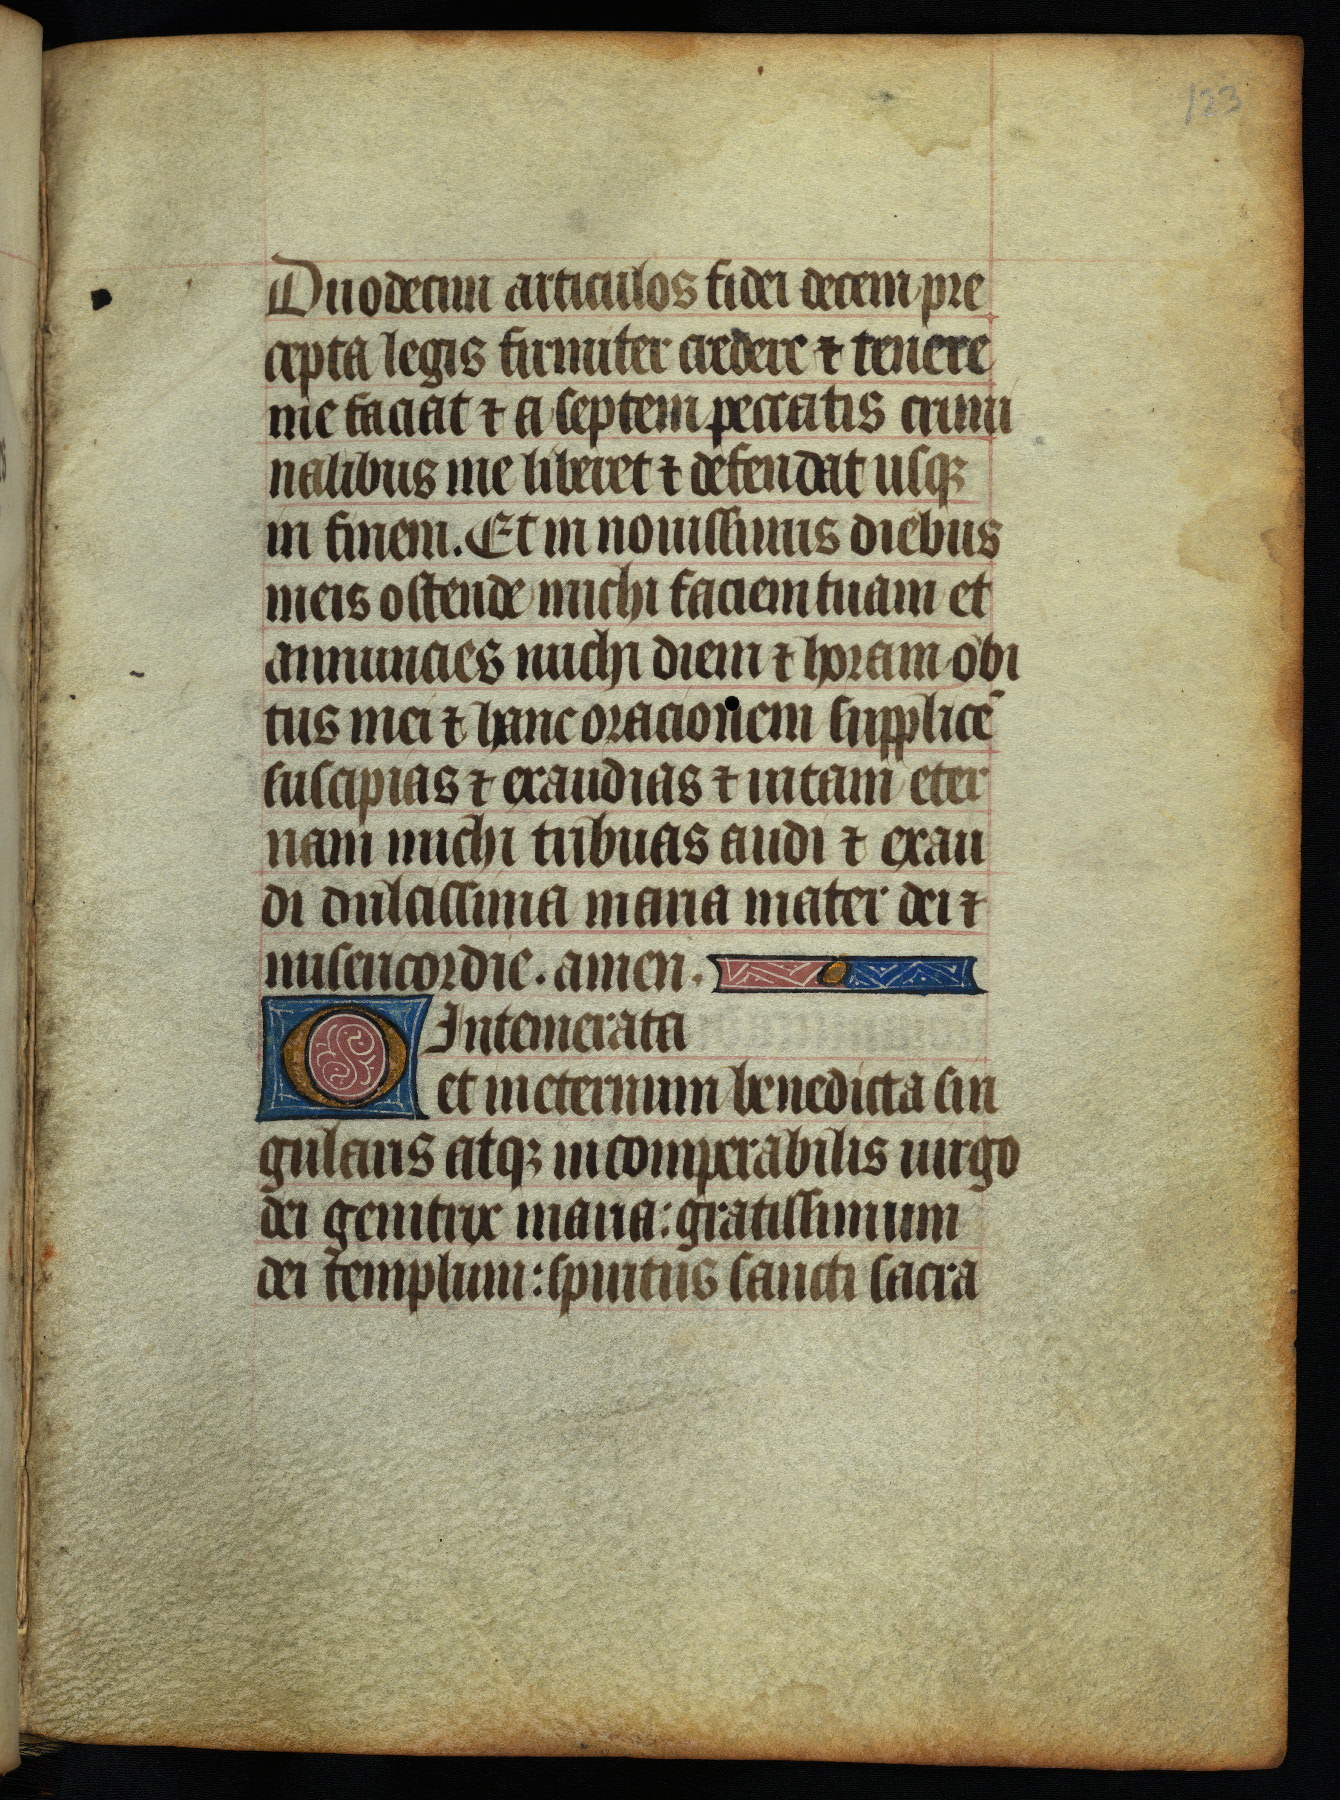 123
Duodecim articulos fidei decem pre
cepta legis firmiter credere ⁊ tenere
me faciat ⁊ a septem peccatis crimi
nalibus me liberet ⁊ defendat usqꝫ
in finem. Et in novissimis diebus
meis ostende michi faciem tuam et
annuncies michi diem ⁊ horam obi
tus mei ⁊ hanc oracionem supplicē
suscipias ⁊ exaudias ⁊ vitam eter
nam michi tribuas audi ⁊ exau
di dulcissima maria mater dei ⁊
misericordie. amen.
O Intemerata
et in eternum benedicta sin
gularis atqꝫ incomperabilis virgo
dei genitrix maria: gratissimum
dei templum: spiritus sancti sacra